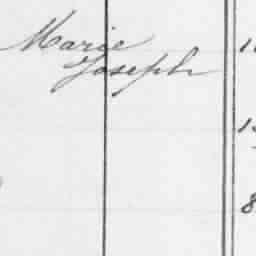 Marie
Joseph
8